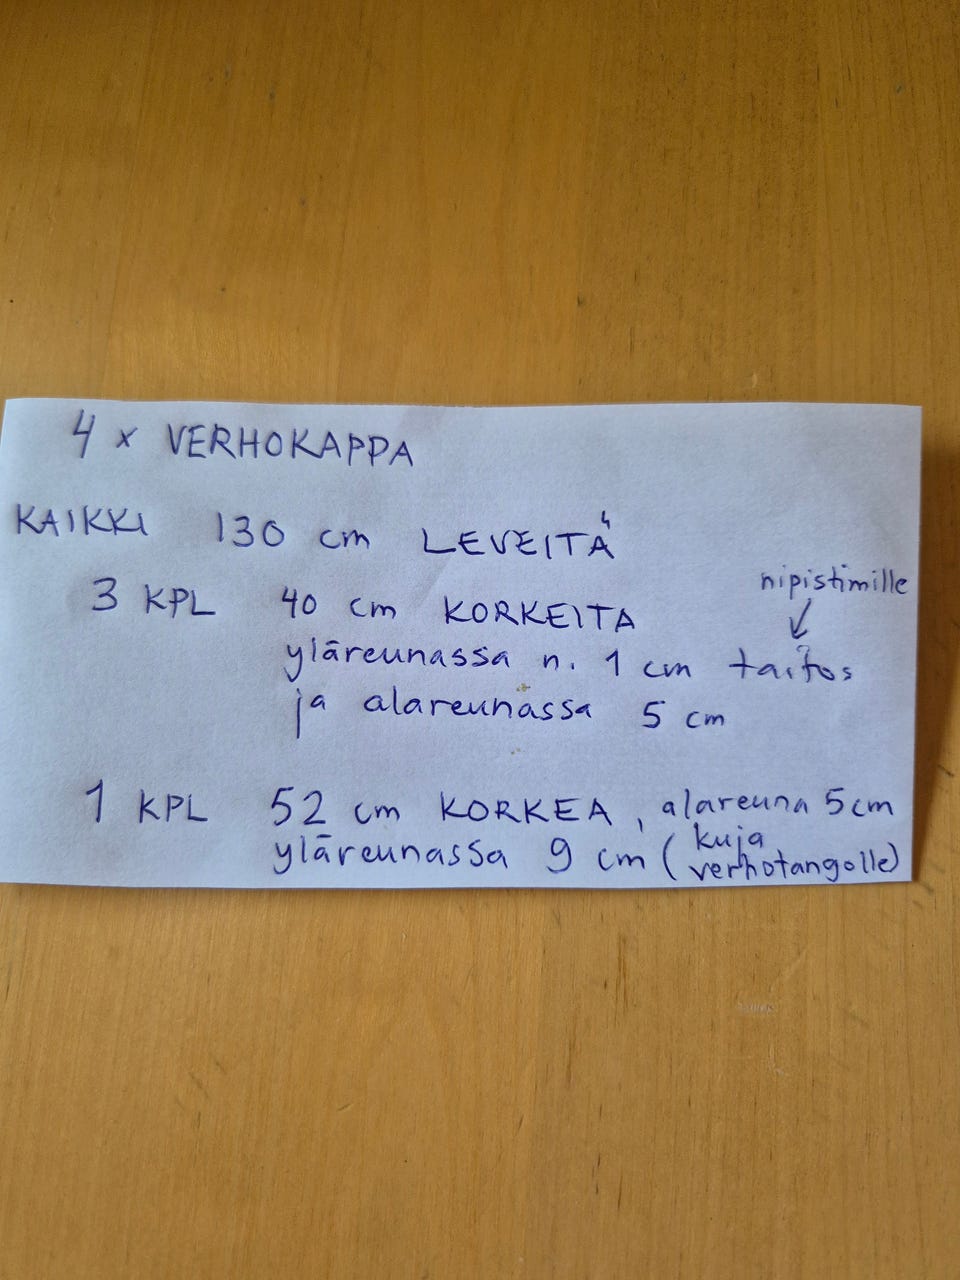 4 x VERHOKAPPA
KAIKKI 130 cm LEVEITÄ
nipistimille
3 KPL 40 cm KORKEITA
yläreunassa n. 1 cm taitos
ja alareunassa 5 cm
1 KPL 52 cm KORKEA, alareuna 5 cm
yläreunassa 9 cm (kuja
verhotangolle)